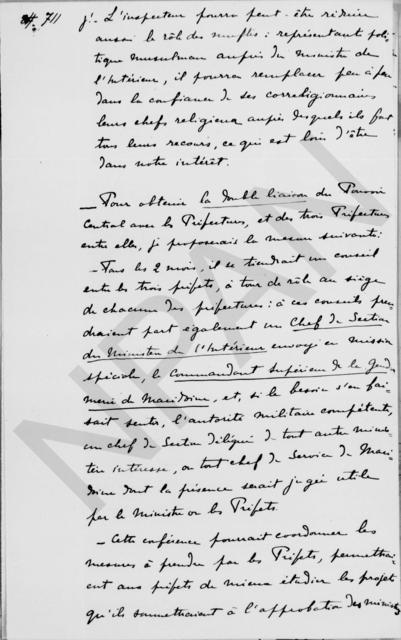 711
j'. L'inspecteur pourra peut-être réduire
aussi le rôle des muftis : représentant poli-
tique musulman auprès du Ministre de
l'Intérieur, il pourra remplacer peu à peu
dans la confiance de ses correligionnaires
leurs chefs religieux auprès desquels ils font
tous leurs recours, ce qui est loin d'être
dans notre intérêt.
— Pour obtenir la double liaison du Pouvoir
Central avec les Préfectures, et des trois Préfectures
entre elles, je proposerais la mesure suivante :
— Tous les 2 mois, il se tiendrait un conseil
entre les trois préfets, à tour de rôle au siège
de chacune des préfectures : à ces conseils pren-
draient part également un Chef de Section
du Ministère de l'Intérieur envoyé en mission
spéciale, le Commandant Supérieur de la Gendar-
merie de Macédoine, et, si le besoin s'en fai-
sait sentir, l'autorité militaire compétente,
un chef de Section délégué de tout autre minis-
tère intéressé, ou tout chef de Service de Macé-
doine dont la présence serait jugée utile
par le Ministre ou les Préfets.
— Cette conférence pourrait coordonner les
mesures à prendre par les Préfets, permettrai-
ent aux préfets de mieux étudier les projets
qu'ils soumettraient à l'approbation des ministres
NPAN